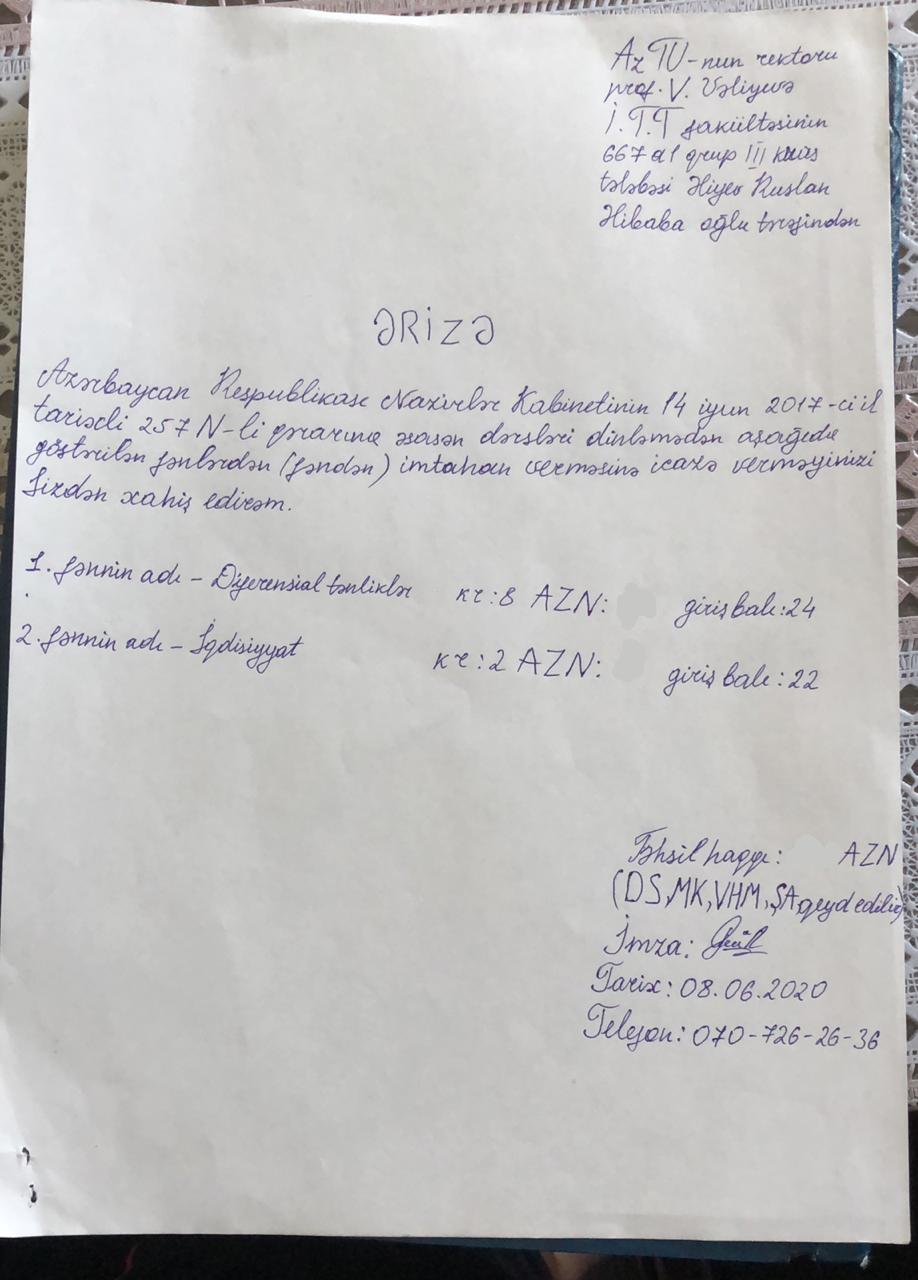 AzTU-nun rektoru
prof. V. Vəliyevə
İ.T.T fakültəsinin
667 a1 qrup III kurs
tələbəsi Əliyev Ruslan
Əlibaba oğlu tərəfindən
ƏRİZƏ
Azərbaycan Respublikası Nazirlər Kabinetinin 14 iyun 2017-ci il
tarixli 257 N-li qərarına əsasən dərsləri dinləmədən aşağıda
göstərilən fənlərdən (fəndən) imtahan verməsinə icazə verməyinizi
Sizdən xahiş edirəm.
1. fənnin adı - Diferensial tənliklər kr: 8 AZN: giriş balı: 24
2. fənnin adı - İqdisiyyat kr: 2 AZN: giriş balı: 22
Təhsil haqqı: AZN
(DS, MK, VHM, ŞA qeyd edilir)
İmza:
Tarix: 08.06.2020
Telefon: 070-726-26-36